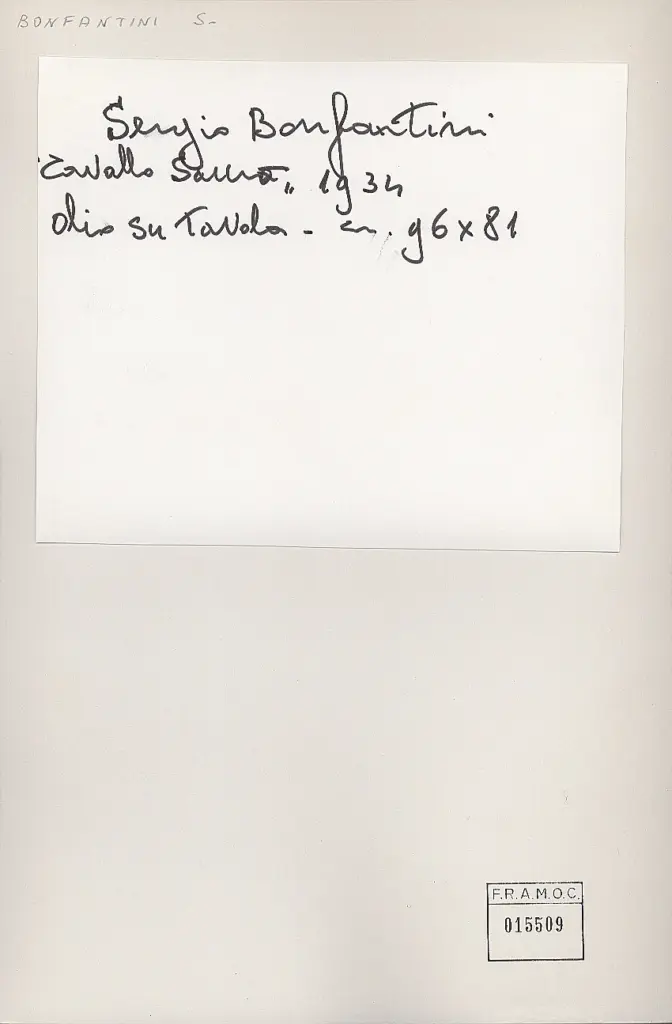 BONFANTINI S-
Sergio Bonfantini
"Cavallo Sauro„ 1934
olio su Tavola - cm. 96x81
F.R.A.M.O.C.
015509